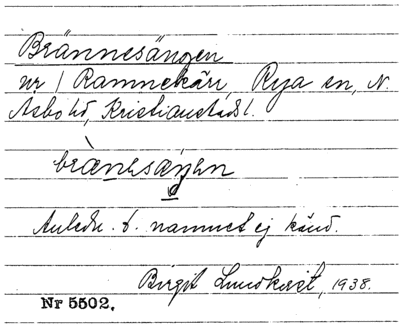 Brännesängen
nr 1 Ramnekärr, Rya sn, N.
Asbo hd, Kristianstads l.
Anledn. t. namnet ej känd.
Birgit Lundkvist, 1938.
Nr 5502.